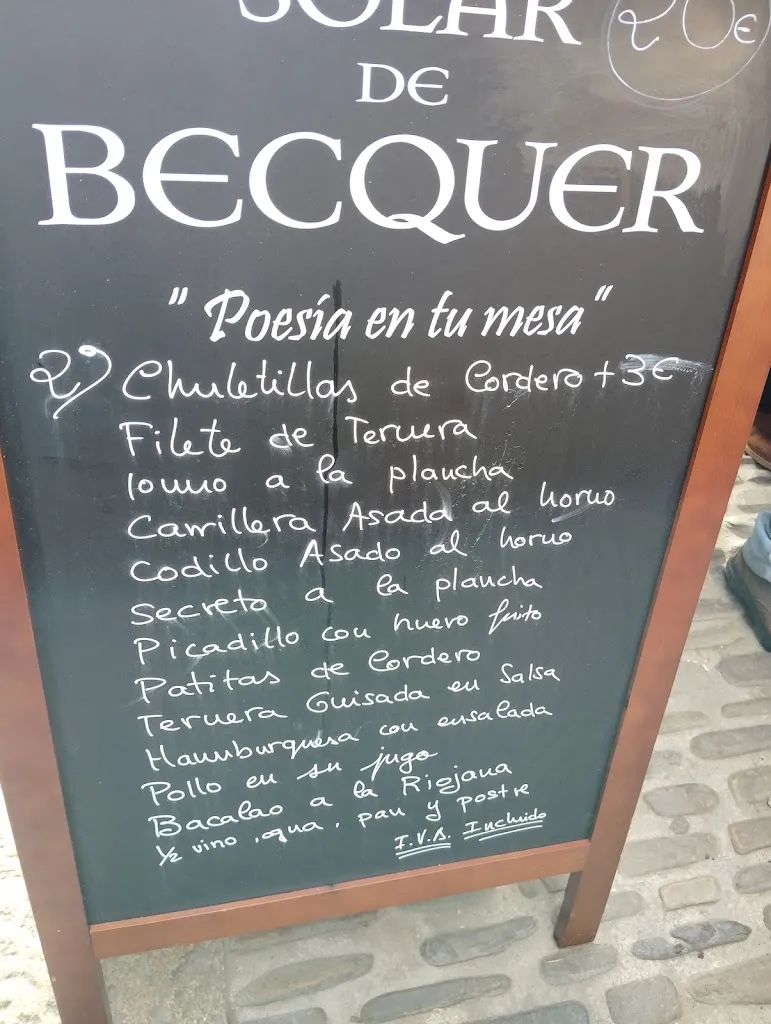 SOLAR
20€
DE
BECQUER
"Poesía en tu mesa"
2) Chuletillas de Cordero + 3€
Filete de Ternera
lomo a la plancha
Carrillera Asada al horno
Codillo Asado al horno
Secreto a la plancha
Picadillo con huevo frito
Patitas de Cordero
Ternera Guisada en Salsa
Hamburquesa con ensalada
Pollo en su jugo
Bacalao a la Riojana
1/2 vino, agua, pan y postre
I.V.A. Incluido